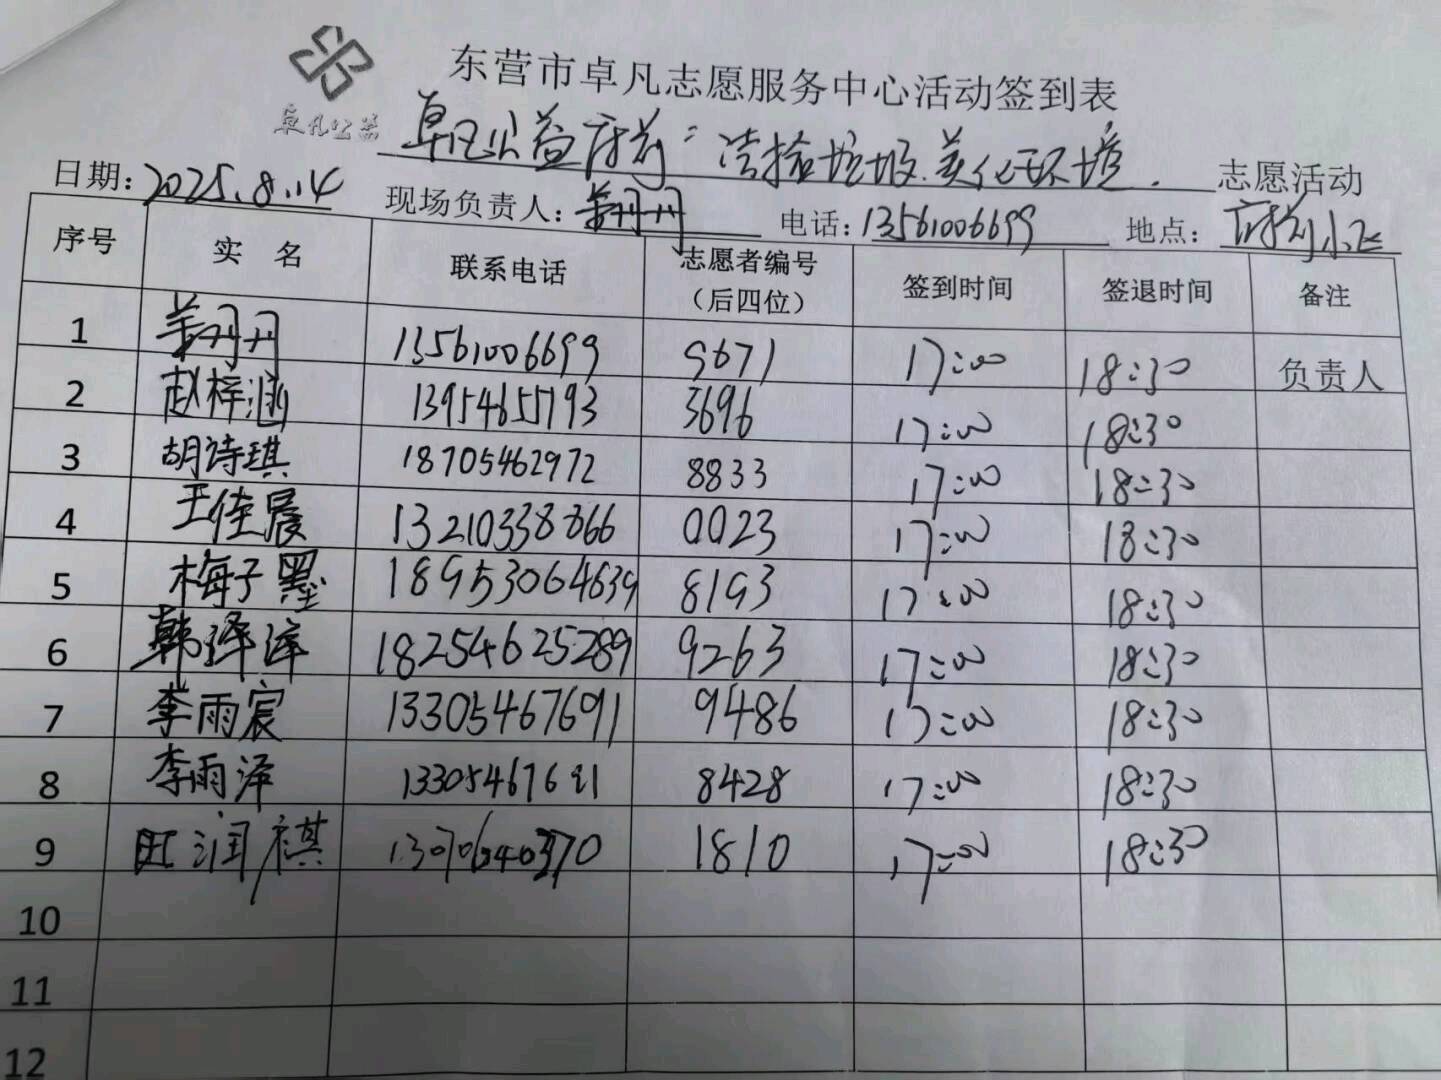 东营市卓凡志愿服务中心活动签到表
卓凡公益
卓凡公益府前“清捡垃圾.美化环境. 志愿活动
日期: 2025.8.14 现场负责人: 姜丹丹 电话: 13561006699 地点: 府前小区
序号 实 名 联系电话 志愿者编号（后四位） 签到时间 签退时间 备注
1 姜丹丹 13561006699 9671 17:00 18:30 负责人
2 赵梓涵 13954655793 3696 17:00 18:30
3 胡诗琪 18705462972 8833 17:00 18:30
4 王佳晨 13210338866 0023 17:00 18:30
5 梅子墨 18953064639 8193 17:00 18:30
6 韩泽洋 18254625289 9263 17:00 18:30
7 李雨宸 13305467691 9486 17:00 18:30
8 李雨泽 13305467691 8428 17:00 18:30
9 润祺 1810 17:00 18:30
10
11
12